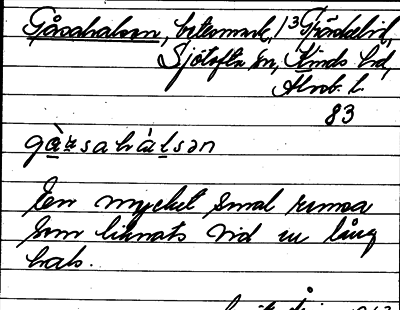 Gåsahalsen, betesmark, 1³
Sjötofta sn, Kinds hd,
Älvsb. l.
83
gàsahálsən
En mycket smal remsa
som liknats vid en lång
hals.